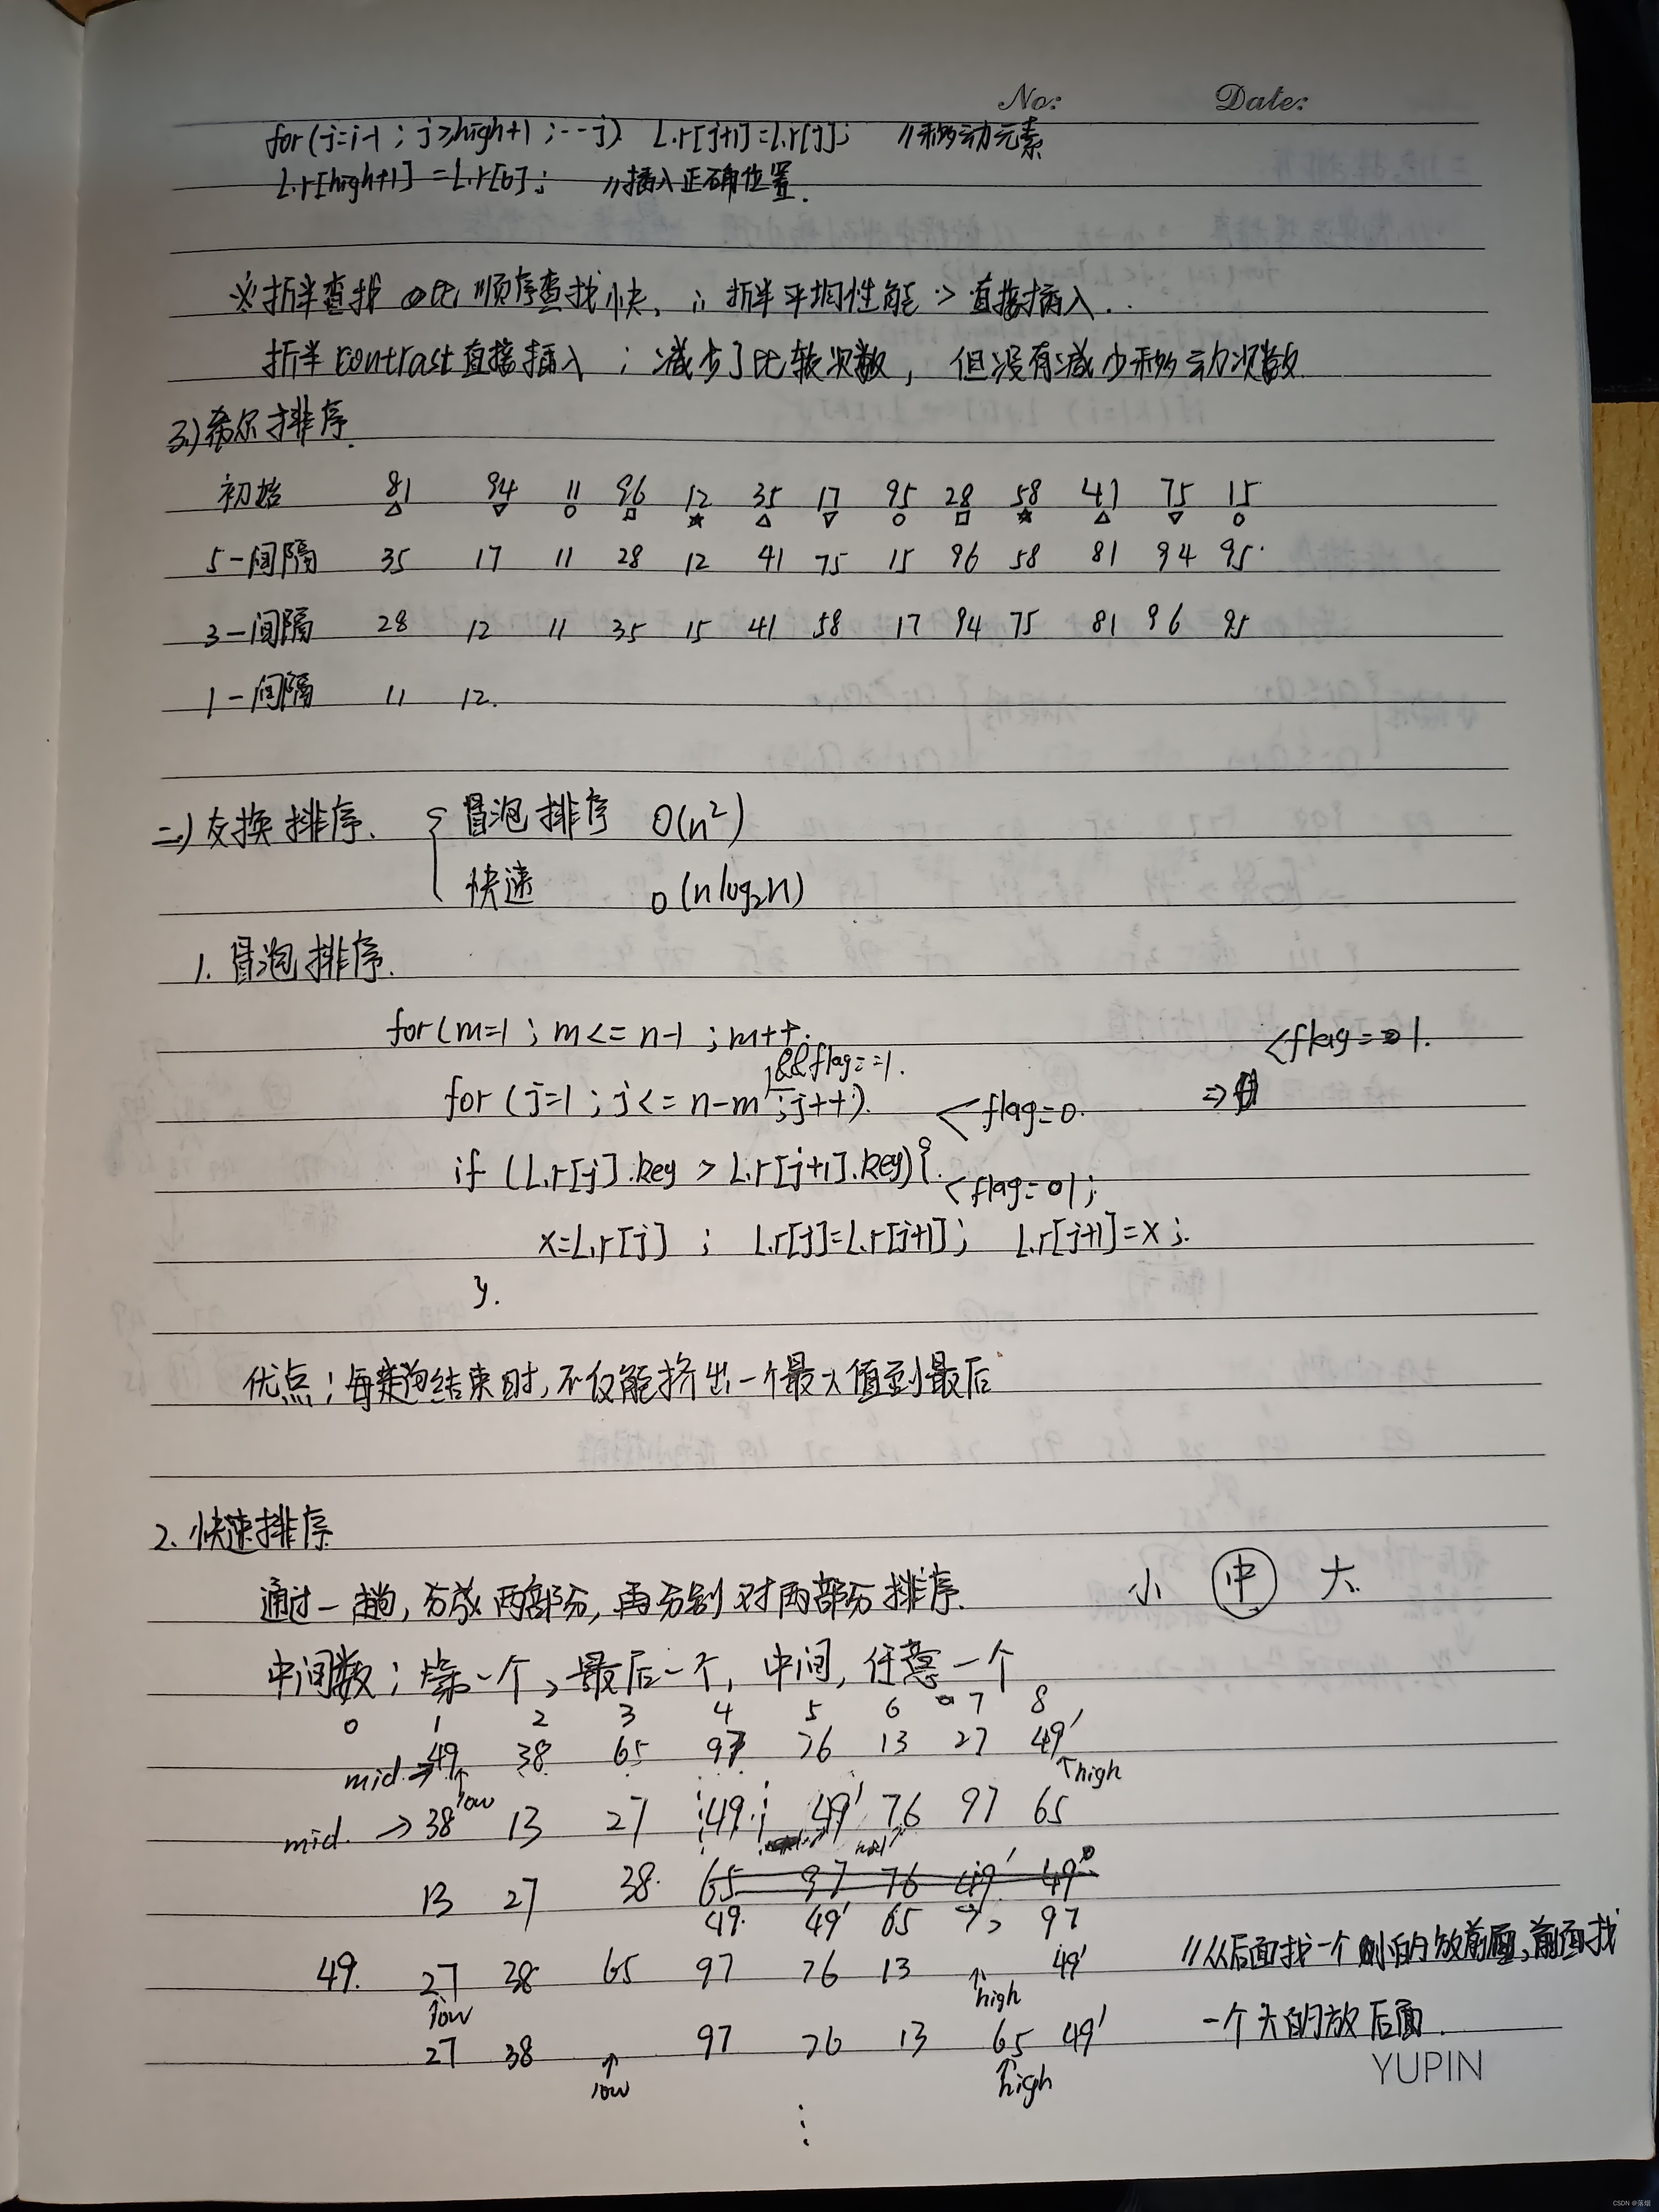 No: Date:
for(j=i-1 ; j≥high+1 ; --j) L.r[j+1]=L.r[j]; //移动元素
L.r[high+1] =L.r[0]; //插入正确位置.
※折半查找 比 顺序查找快, ∴ 折半平均性能 > 直接插入..
折半contrast直接插入 ; 减少了比较次数, 但没有减少移动次数
3.)希尔排序.
初始 81 94 11 96 12 35 17 95 28 58 41 75 15
△ ▽ ○ □ ★ △ ▽ ○ □ ★ △ ▽ ○
5-间隔 35 17 11 28 12 41 75 15 96 58 81 94 95
3-间隔 28 12 11 35 15 41 58 17 94 75 81 96 95
1-间隔 11 12.
二.) 交换排序. { 冒泡排序 O(n²)
快速 O(nlog₂n)
1. 冒泡排序.
for(m=1 ; m<= n-1 ; m++.
&&flag==1. <flag=1.
for (j=1 ; j<= n-m ;j++). <flag=0. ⇒
if (L.r[j].key > L.r[j+1].key){ <flag=1;
x=L.r[j] ; L.r[j]=L.r[j+1]; L.r[j+1]=x;
}.
优点;每趟结束时,不仅能挤出一个最大值到最后
2. 快速排序
通过一趟,分成两部分,再分别对两部分排序. 小 中 大
中间数;第一个,最后一个,中间,任意一个
0 1 2 3 4 5 6 7 8
mid→49 38 65 97 76 13 27 49'
↑low ↑high
mid. →38 13 27 49 49' 76 97 65
13 27 38. 65 97 76 49' 49
49. 49' 65 76 97
49. 27 38 65 97 76 13 49' //从后面找一个小的放前面,前面找
↑low ↑high
27 38 97 76 13 65 49' 一个大的放后面.
↑low ↑high
⋮
YUPIN
CSDN @落烟